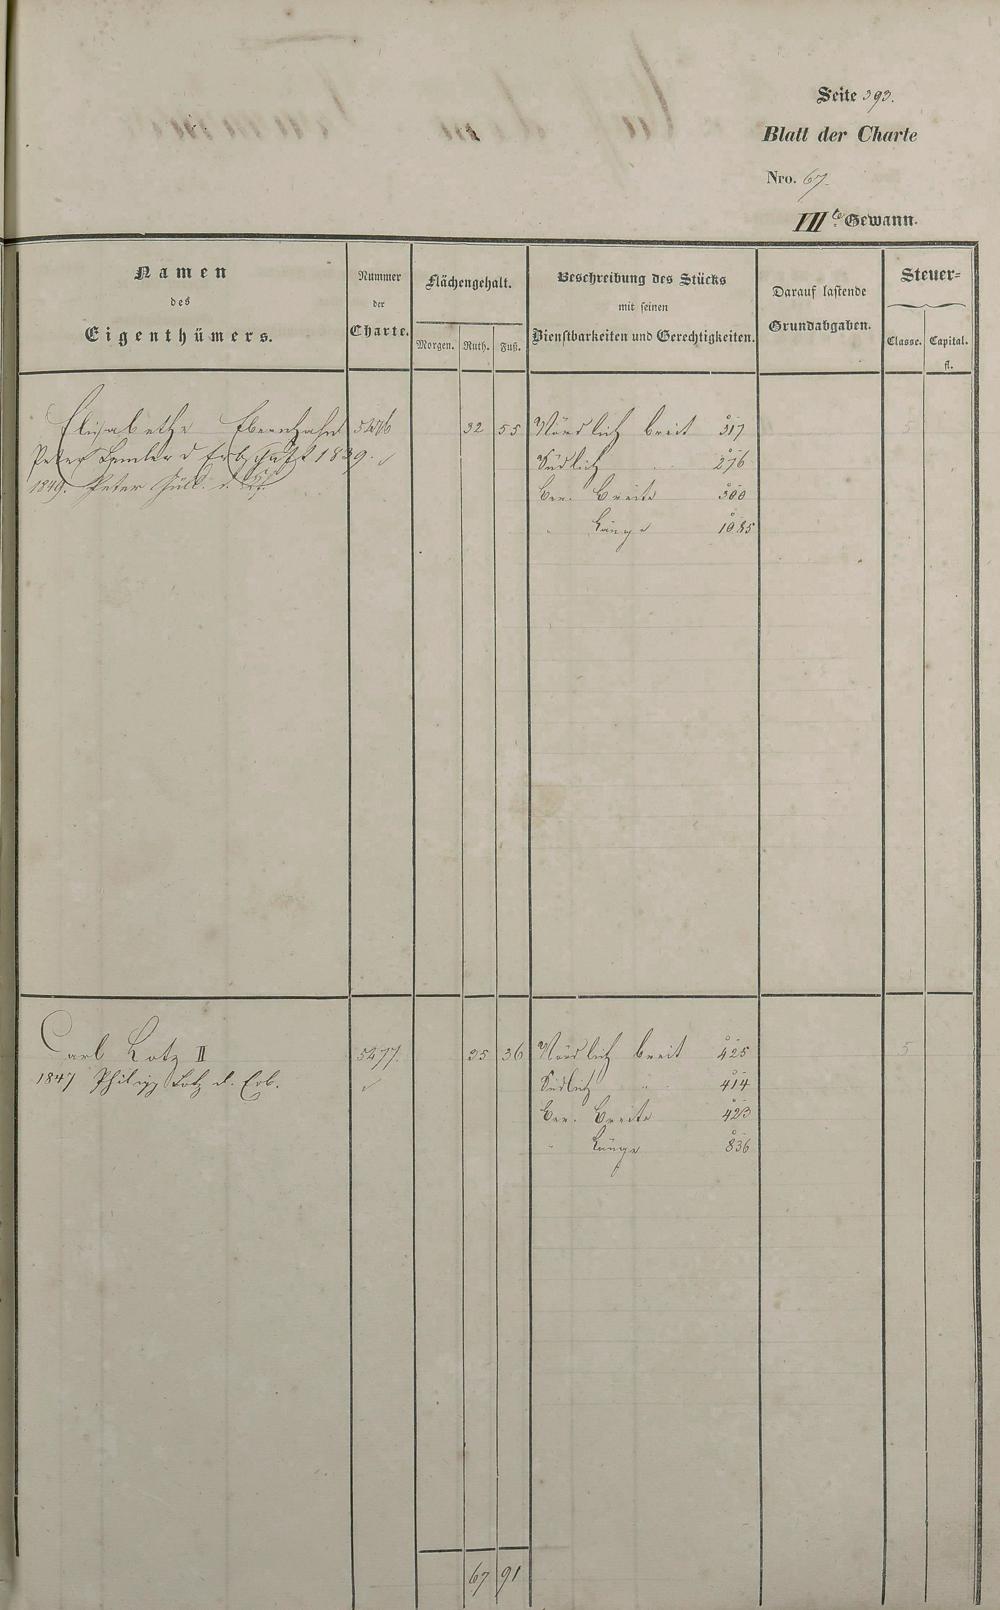 Seite 393.
Blatt der Charte
Nro. 67.
III te Gewann.
Namen
des
Eigenthümers.
Nummer
der
Charte.
Flächengehalt.
Morgen. Ruth. Fuß.
Beschreibung des Stücks
mit seinen
Dienstbarkeiten und Gerechtigkeiten.
Darauf lastende
Grundabgaben.
Steuer=
Classe. Capital.
fl.
Elisabethe Ebenhahn 5476 32 55 Nördlich breit 317
Peter d Erbschaft 1839. Südlich 276
1849. Peter d. Ber. Breite 300
" Länge 1085
Carl Lotz II 5477. 35 36 Nördlich breit 425 5
1847 Philipp Lotz d. Erb. Südlich " 414
Ber. Breite 423
" Länge 836
67 91